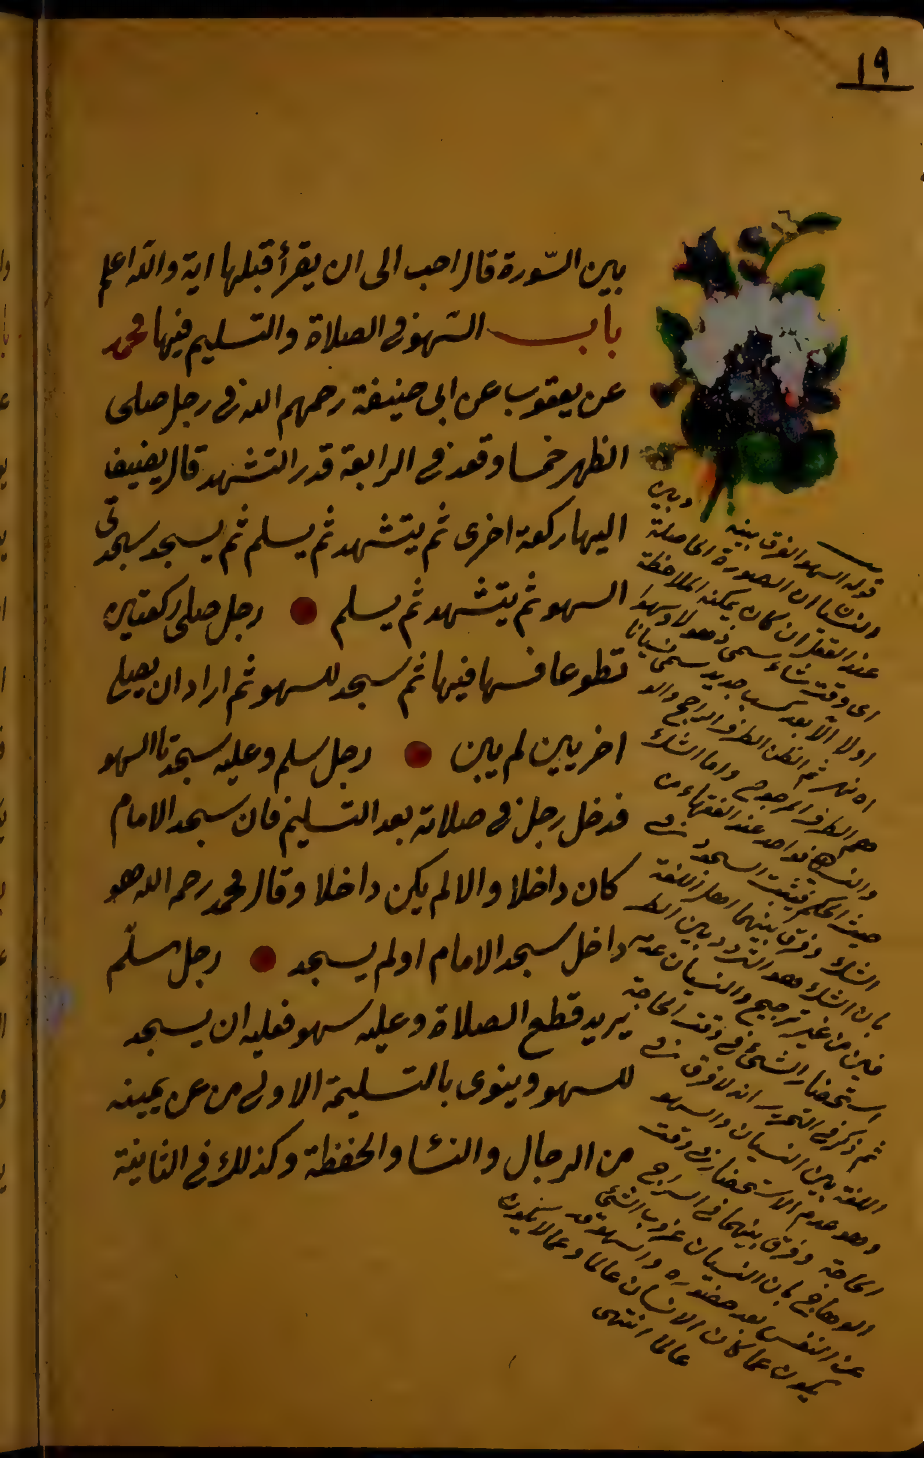 ١٩
بين السّورة قال احب الى ان يقرأ قبلها اية والله اعلم
باب السّهو فى الصلاة والتسليم فيها محمد
عن يعقوب عن ابى حنيفة رحمهم الله فى رجل صلى
الظهر خمسا وقعد فى الرابعة قدر التشهد قال يضيف
اليها ركعة اخرى ثم يتشهد ثم يسلم ثم يسجد سجدتى
السهو ثم يتشهد ثم يسلم رجل صلى ركعتين
تطوعا فسها فيها ثم سجد للسهو ثم اراد ان يصلى
اخريين لم يبن رجل سلم وعليه سجدتا السهو
فدخل رجل فى صلاته بعد التسليم فان سجد الامام
كان داخلا والا لم يكن داخلا وقال محمد رحمه الله هو
داخل سجد الامام او لم يسجد رجل سلّم
يريد قطع الصلاة وعليه سهو فعليه ان يسجد
للسهو وينوى بالتسليمة الاولى من عن يمينه
من الرجال والنسا والحفظة وكذلك فى الثانية
قوله السهو الفرق بينه وبين
النسيان ان الصورة الحاصلة
عند العقل ان كان يمكنه الملاحظة
اى وقت شاء سمى ذهولا وسهوا
اولا الا بعد كسب جديد سمى نسيانا
ثم الظن الطرف الراجح والو
هم الطرف المرجوح واما الشك
والنسيان فواحد عند الفقهاء من
حيث الحكم فيثبت السجود فى
الشك وفرق بينهما اهل اللغة
بان الشك هو التردد بين الطر
فين من غير ترجيح والنسيان عدم
استحضار الشئ فى وقت الحاجة
ثم ذكر فى التحرير انه لا فرق فى
اللغة بين النسيان والسهو
وهو عدم الاستحضار فى وقت
الحاجة وفرق بينهما فى السراج
الوهاج بان النسيان عزوب الشئ
عن النفس بعد حضوره والسهو قد
يكون عما كان الانسان عالما وعما لا يكون
عالما انتهى